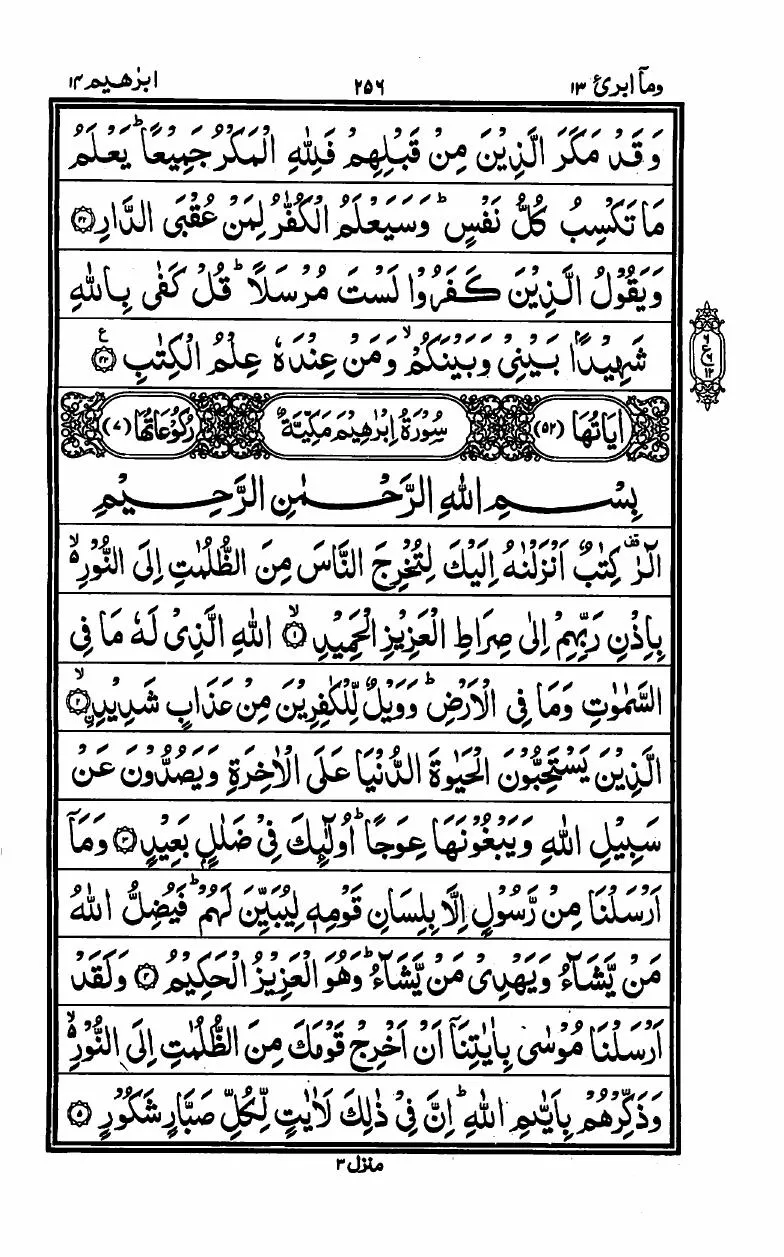 ومآ ابرئ ١٣ ٢٥٦ ابرٰهيم ١٤
وَقَدْ مَكَرَ الَّذِيْنَ مِنْ قَبْلِهِمْ فَلِلّٰهِ الْمَكْرُ جَمِيْعًا ؕ يَعْلَمُ
مَا تَكْسِبُ كُلُّ نَفْسٍ ؕ وَسَيَعْلَمُ الْكُفّٰرُ لِمَنْ عُقْبَى الدَّارِ ۝٤٢
وَيَقُوْلُ الَّذِيْنَ كَفَرُوْا لَسْتَ مُرْسَلًا ؕ قُلْ كَفٰى بِاللّٰهِ
شَهِيْدًۢا بَيْنِيْ وَبَيْنَكُمْ ۙ وَمَنْ عِنْدَهٗ عِلْمُ الْكِتٰبِ ۝٤٣ ع
٦ ع ٦ ١٢
اٰيَاتُهَا (٥٢) سُوْرَةُ اِبْرٰهِيْمَ مَكِّيَّةٌ رُكُوْعَاتُهَا (٧)
بِسْمِ اللّٰهِ الرَّحْمٰنِ الرَّحِيْمِ
الٓرٰ ۫ كِتٰبٌ اَنْزَلْنٰهُ اِلَيْكَ لِتُخْرِجَ النَّاسَ مِنَ الظُّلُمٰتِ اِلَى النُّوْرِ ۙ۬
بِاِذْنِ رَبِّهِمْ اِلٰى صِرَاطِ الْعَزِيْزِ الْحَمِيْدِ ۙ۝١ اللّٰهِ الَّذِيْ لَهٗ مَا فِي
السَّمٰوٰتِ وَمَا فِي الْاَرْضِ ؕ وَوَيْلٌ لِّلْكٰفِرِيْنَ مِنْ عَذَابٍ شَدِيْدِ ۟ۙ۝٢
الَّذِيْنَ يَسْتَحِبُّوْنَ الْحَيٰوةَ الدُّنْيَا عَلَى الْاٰخِرَةِ وَيَصُدُّوْنَ عَنْ
سَبِيْلِ اللّٰهِ وَيَبْغُوْنَهَا عِوَجًا ؕ اُولٰٓئِكَ فِيْ ضَلٰلٍۭ بَعِيْدٍ ۝٣ وَمَآ
اَرْسَلْنَا مِنْ رَّسُوْلٍ اِلَّا بِلِسَانِ قَوْمِهٖ لِيُبَيِّنَ لَهُمْ ؕ فَيُضِلُّ اللّٰهُ
مَنْ يَّشَآءُ وَيَهْدِيْ مَنْ يَّشَآءُ ؕ وَهُوَ الْعَزِيْزُ الْحَكِيْمُ ۝٤ وَلَقَدْ
اَرْسَلْنَا مُوْسٰى بِاٰيٰتِنَآ اَنْ اَخْرِجْ قَوْمَكَ مِنَ الظُّلُمٰتِ اِلَى النُّوْرِ ۙ۬
وَذَكِّرْهُمْ بِاَيّٰىمِ اللّٰهِ ؕ اِنَّ فِيْ ذٰلِكَ لَاٰيٰتٍ لِّكُلِّ صَبَّارٍ شَكُوْرٍ ۝٥
منزل ٣